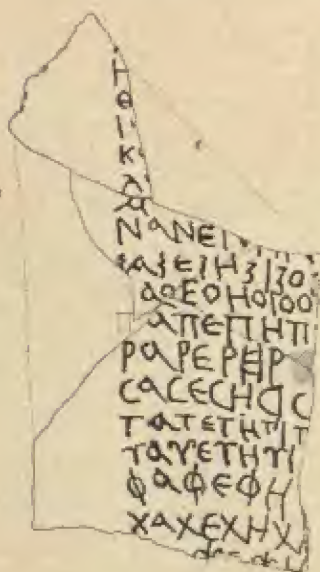 Η
Θ
Ι
Κ
Λ
Μ
ΝΑΝΕΙ
ΞΑΞΕΞΗΞΙΞΟ
ΑΟΕΟΗΟΙΟΟ
ΑΠΕΠΗΠ
ΡΑΡΕΡΗΡ
ϹΑϹΕϹΗϹΙϹ
ΤΑΤΕΤΗΤΙΤ
ΤΑΥΕΤΗΤΙ
ΦΑΦΕΦΗ
ΧΑΧΕΧΗΧ